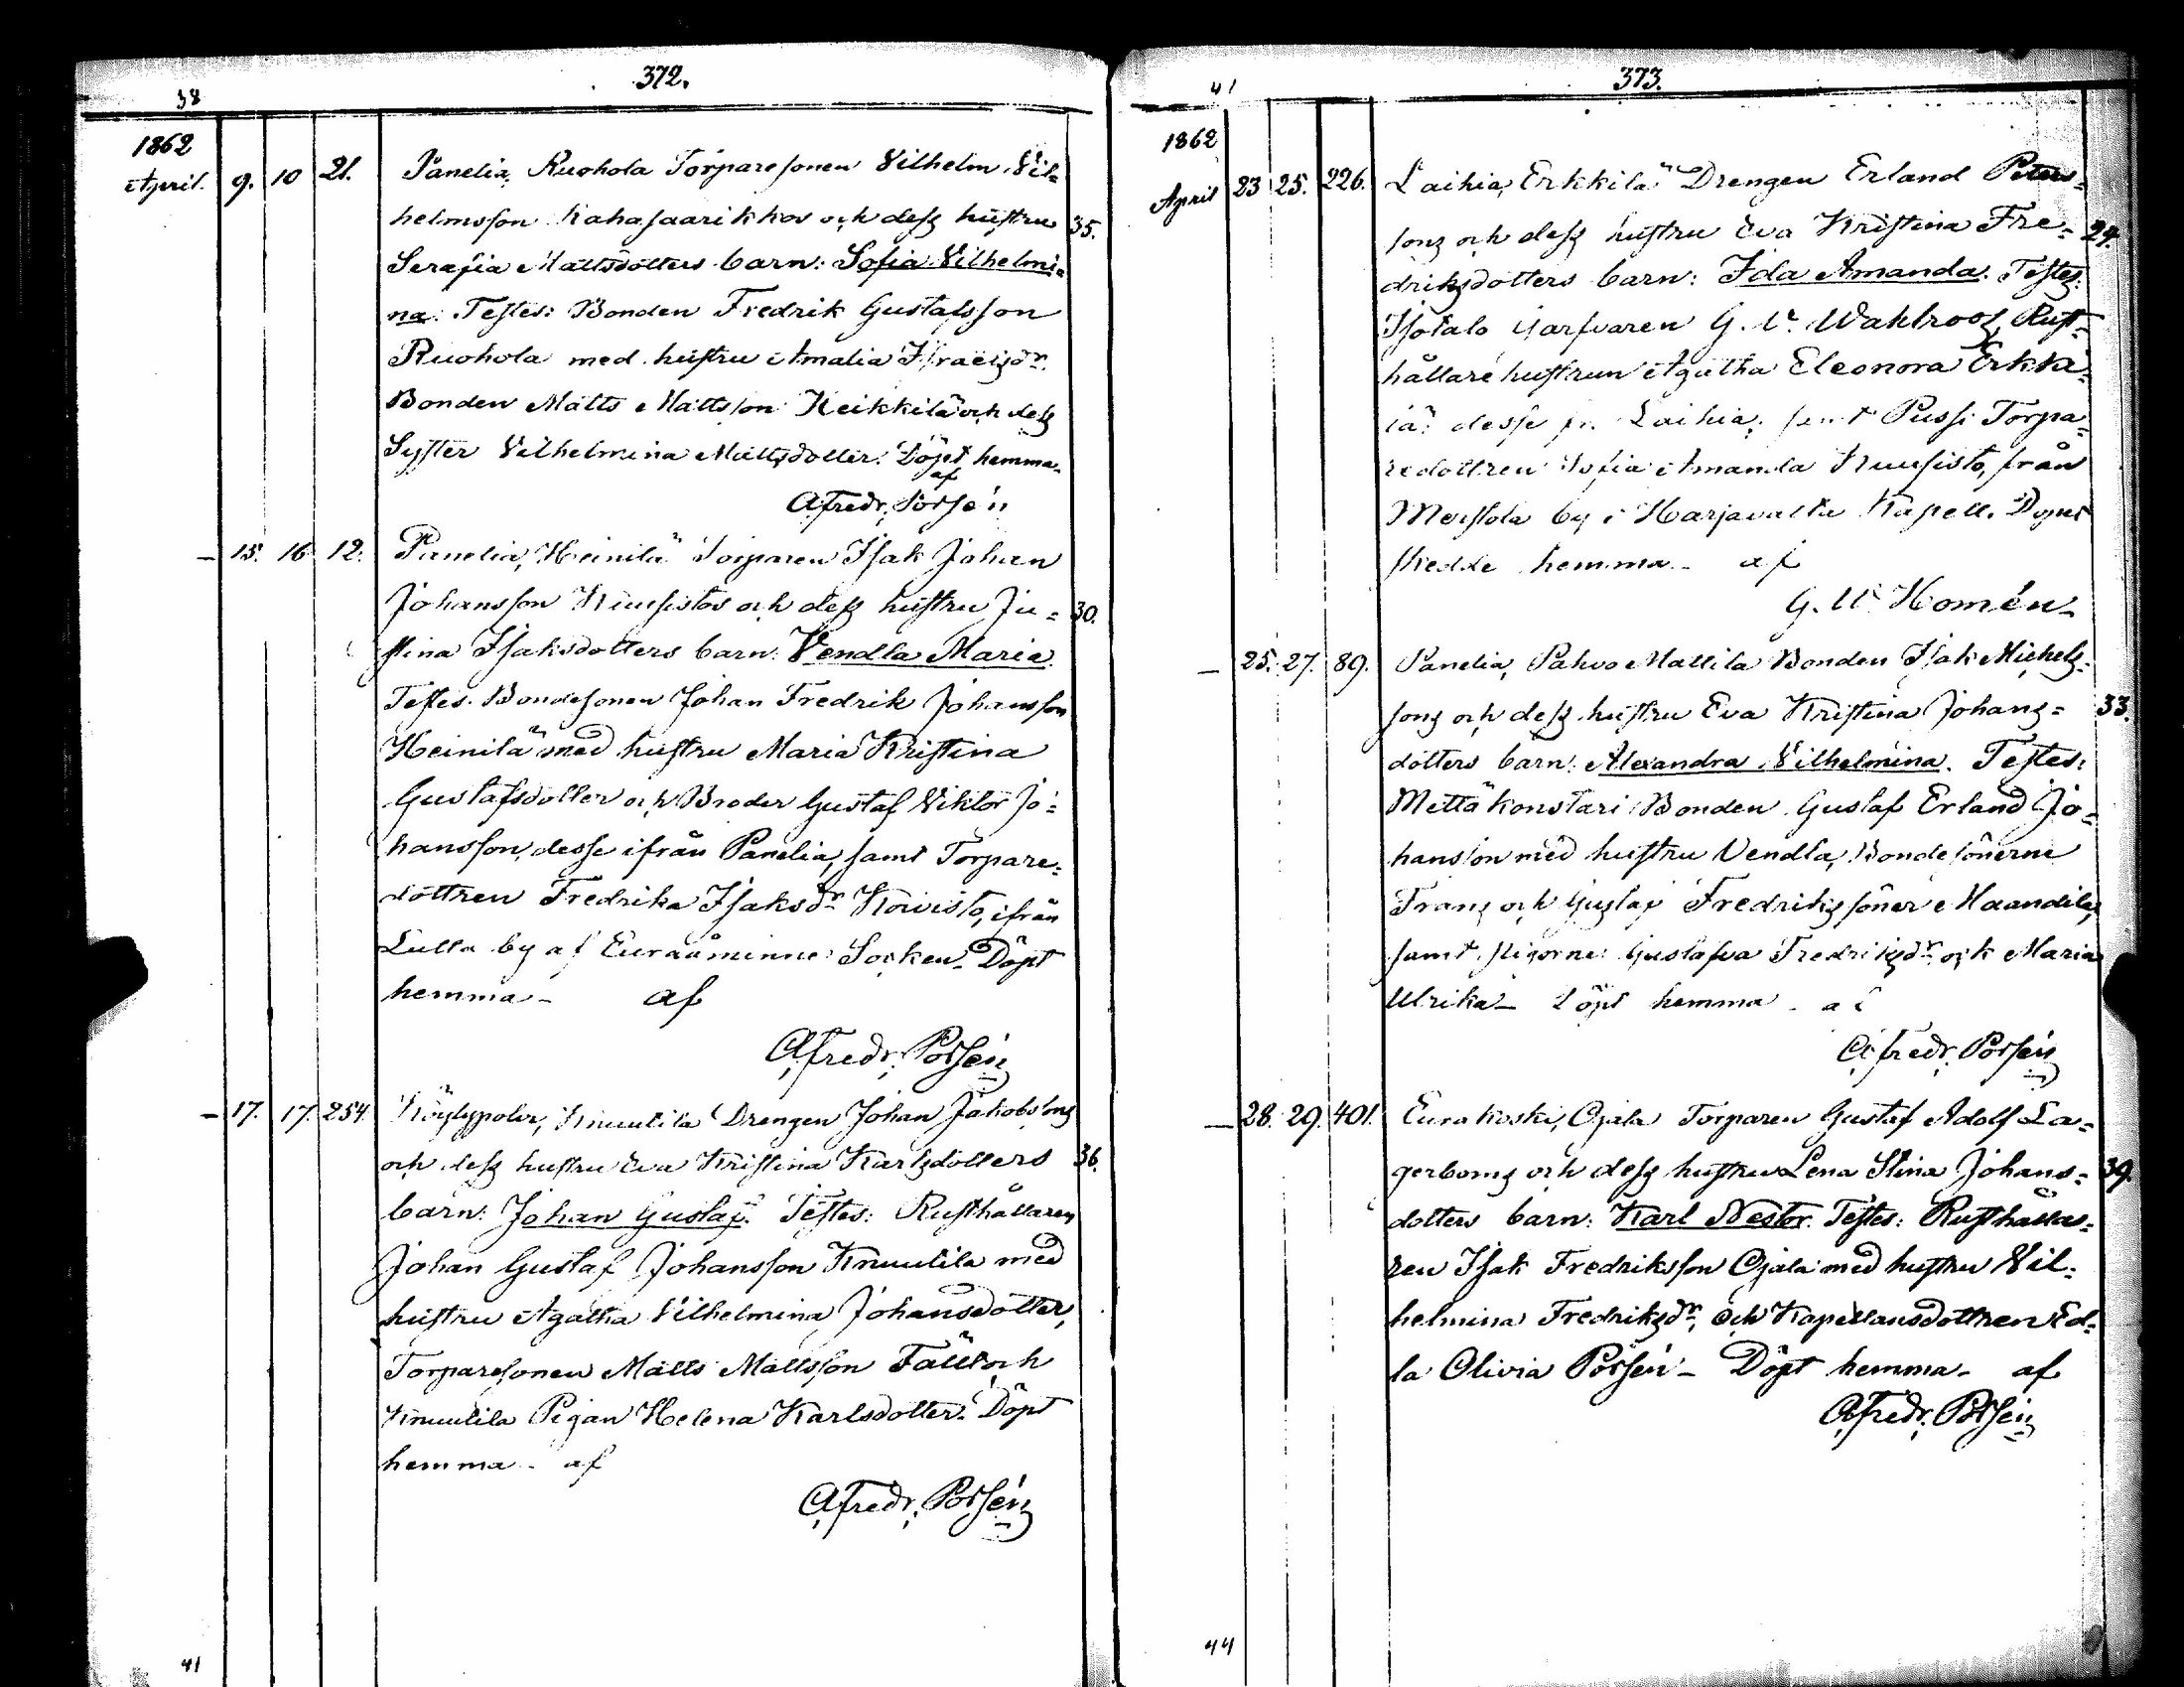 372.
38
1862
April. 9. 10 21. Panelia, Ruohola Torparesonen Vilhelm Vil=
helmsson Kahasaarikkos och dess hustru 35.
Serafia Mattsdotters barn: Sofia Vilhelmi=
na. Testes: Bonden Fredrik Gustafsson
Ruohola med hustru Amalia Israelsdr.
Bonden Matts Mattsson Heikkilä och dess
Syster Vilhelmina Mattsdotter. Döpt hemma
af
Afredr. Porsén
– 15. 16 12. Panelia, Heinilä Torparen Isak Johan
Johansson Kuusistos och dess hustru Ju= 30.
stina Isaksdotters barn: Vendla Maria.
Testes. Bondesonen Johan Fredrik Johansson
Heinilä med hustru Maria Kristina
Gustafsdotter och Broder Gustaf Viktor Jo=
hansson, desse ifrån Panelia, samt Torpare=
dottren Fredrika Isaksdr Koivisto, ifrån
Lutta by af Euraåminne Socken. Döpt
hemma – af
Afredr. Porsén
– 17. 17. 254. Köylypolvi, Knuutila Drengen Johan Jakobsons
och dess hustru Eva Kristina Karlsdotters 36.
barn: Johan Gustaf. Testes: Rusthållaren
Johan Gustaf Johansson Knuutila med
hustru Agatha Vilhelmina Johansdotter,
Torparesonen Matts Mattsson Fält och
Knuutila Pigan Helena Karlsdotter. Döpt
hemma – af
Afredr. Porsén
41
373.
41
1862
April 23 25. 226. Laihia, Erkkilä Drengen Erland Peters=
sons och dess hustru Eva Kristina Fre= 24.
driksdotters barn: Ida Amanda. Testes:
Isotalo Garfvaren G. V. Wahlroos, Rust=
hållare hustrun Agatha Eleonora Erkki=
lä desse fr. Laihia, samt Pussi Torpa=
redottren Sofia Amanda Kuusisto, från
Merstola by i Harjavalta Kapell. Dopet
skedde hemma – af
G. W. Homén
– 25. 27. 89. Panelia, Pahvo Mattila Bonden Isak Michels=
sons och dess hustru Eva Kristina Johans= 33.
dotters barn: Alexandra Vilhelmina. Testes:
Mettäkonstari Bonden Gustaf Erland Jo=
hansson med hustru Vendla, Bondesönerne
Frans och Gustaf Fredrikssöner Maandila,
samt Pigorne Gustafva Fredriksdr och Maria
Ulrika – Döpt hemma – af
Afredr. Porsén
– 28. 29. 401. Eurakoski, Ojala Torparen Gustaf Adolf La=
gerboms och dess hustru Lena Stina Johans= 39.
dotters barn: Karl Nestor. Testes: Rusthålla=
ren Isak Fredriksson Ojala med hustru Vil=
helmina Fredriksdr, och Kapellansdottren Ed=
la Olivia Porsén – Döpt hemma – af
Afredr. Porsén
44